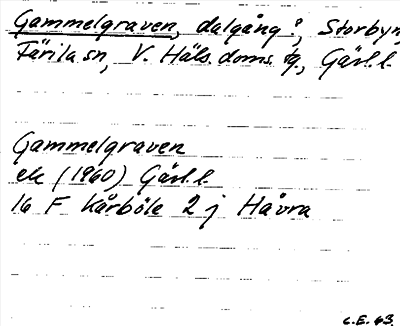 Gammelgraven, dalgång?, Storbyn,
Färila sn, V. Häls. doms. tg., Gävl. l.
Gammelgraven
ek (1960) Gävl. l.
16 F Kårböle 2 j Håvra
C.E. 63.